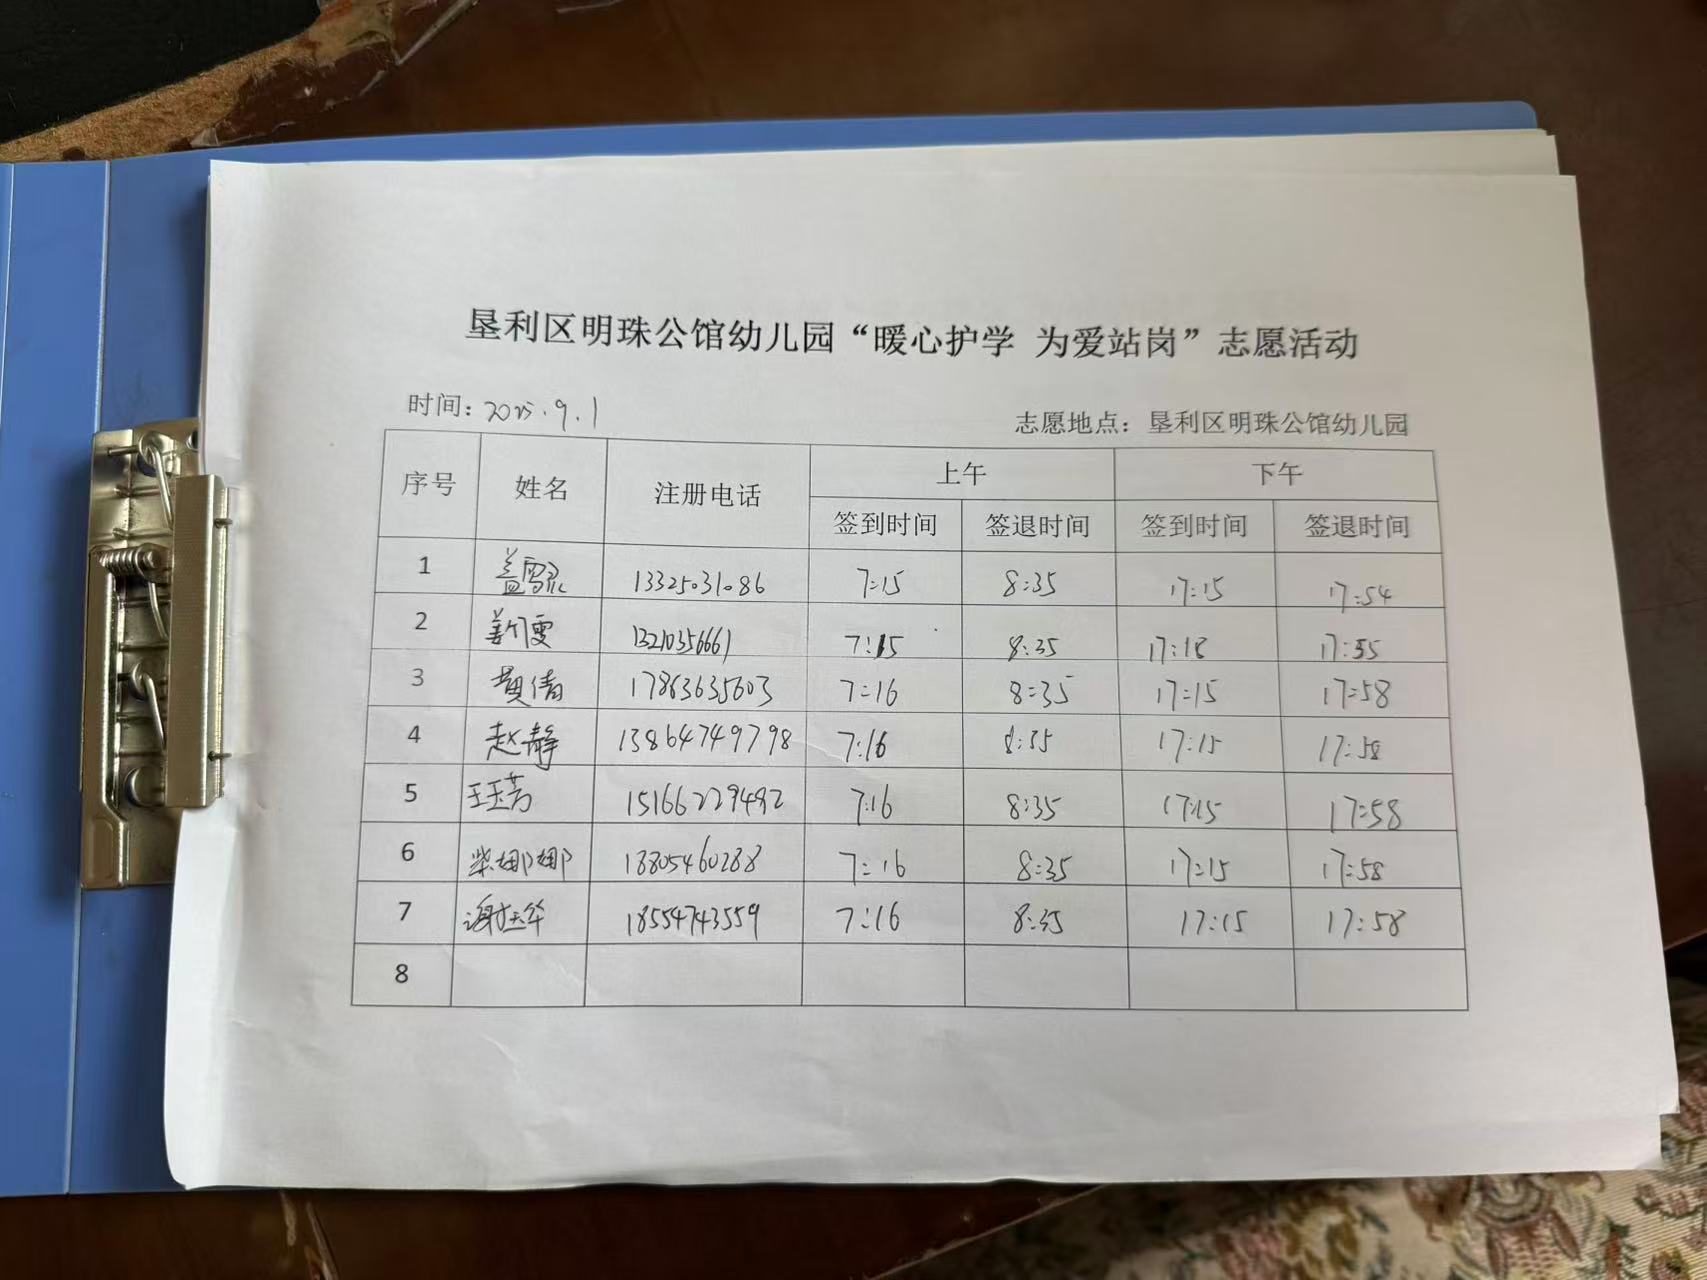 垦利区明珠公馆幼儿园“暖心护学 为爱站岗”志愿活动
时间：2025.9.1 志愿地点：垦利区明珠公馆幼儿园
序号 姓名 注册电话 上午 下午
签到时间 签退时间 签到时间 签退时间
1 13325031086 7:15 8:35 17:15 17:54
2 姜雯 13210356661 7:15 8:35 17:18 17:55
3 黄倩 17863635603 7:16 8:35 17:15 17:58
4 赵静 13864749798 7:16 8:35 17:15 17:58
5 王玉芳 15166229492 7:16 8:35 17:15 17:58
6 柴娜娜 18805460288 7:16 8:35 17:15 17:58
7 18554743559 7:16 8:35 17:15 17:58
8